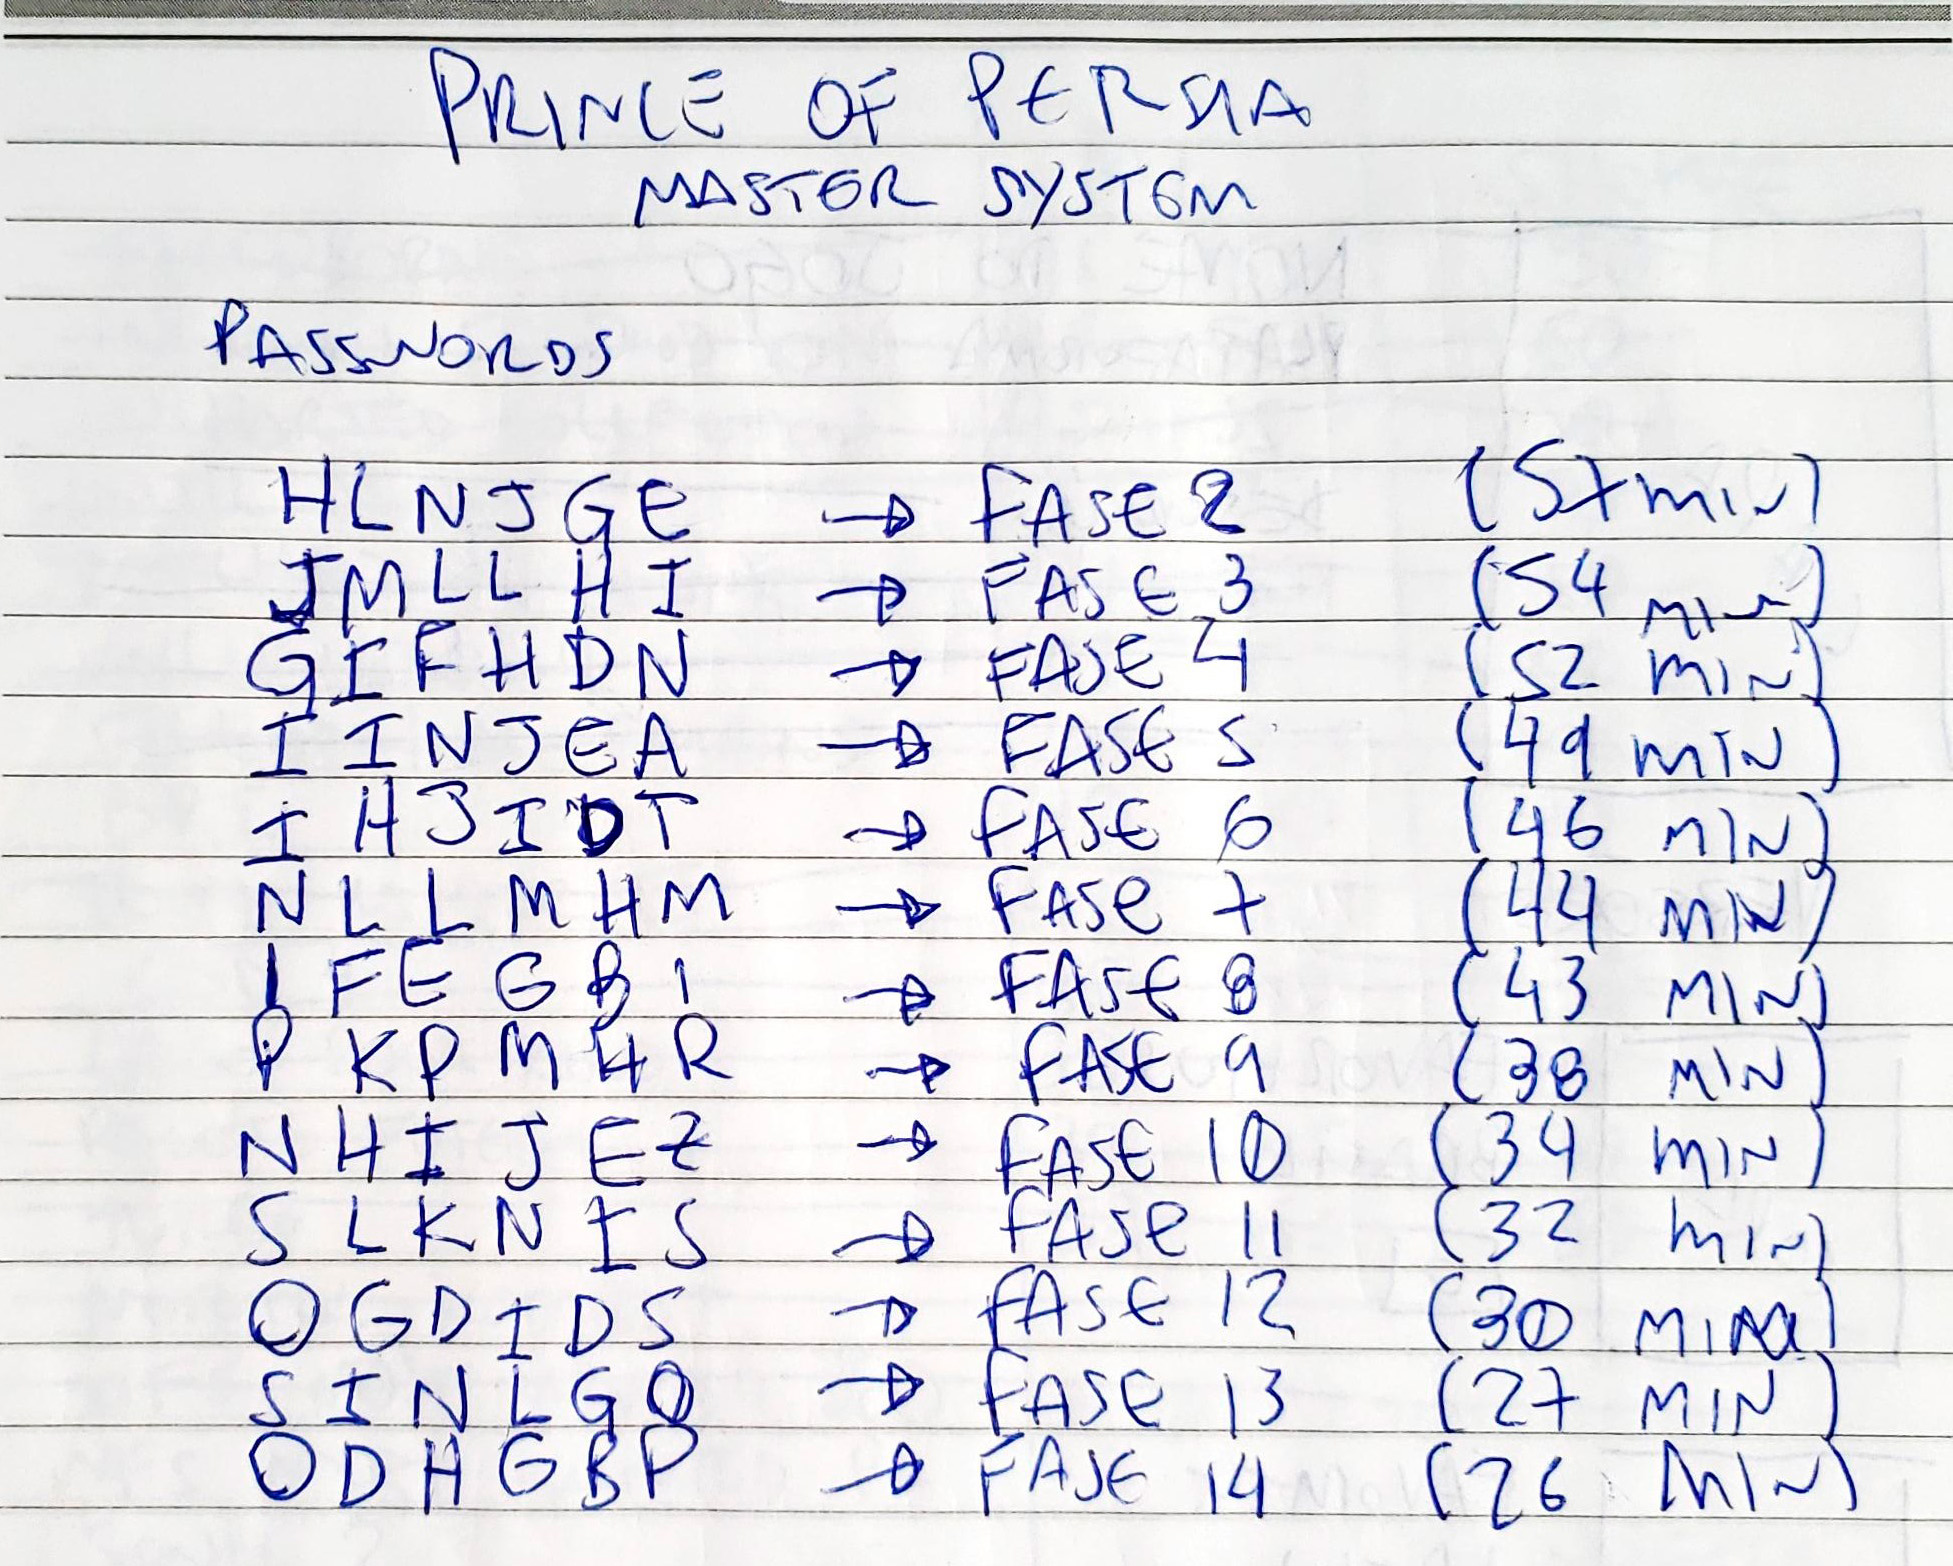 PRINCE OF PERSIA
MASTER SYSTEM
PASSWORDS
HLNJGE → FASE 2 (57 MIN)
JMLLHI → FASE 3 (54 MIN)
GIFHDN → FASE 4 (52 MIN)
IINJEA → FASE 5 (49 MIN)
IHJIDT → FASE 6 (46 MIN)
NLLMHM → FASE 7 (44 MIN)
IFEGBI → FASE 8 (43 MIN)
PKPMHR → FASE 9 (38 MIN)
NHIJEZ → FASE 10 (34 MIN)
SLKNIS → FASE 11 (32 MIN)
OGDIDS → FASE 12 (30 MIN)
SINLGQ → FASE 13 (27 MIN)
ODHGBP → FASE 14 (26 MIN)